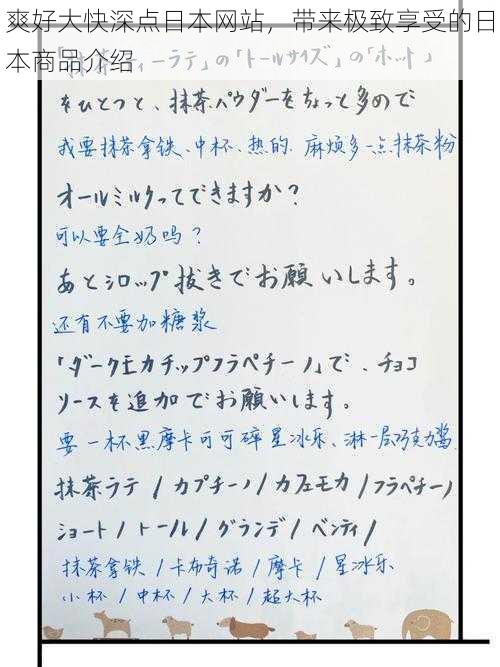 爽好大快深点日本网站，带来极致享受的日
本商品介绍
「抹茶ティーラテ」の「トールサイズ」の「ホット」
をひとつと、抹茶パウダーをちょっと多めで
我要抹茶拿铁、中杯、热的、麻烦多一点抹茶粉
オールミルクってできますか？
可以要全奶吗？
あとシロップ抜きでお願いします。
还有不要加糖浆
「ダークモカチップフラペチーノ」で、チョコ
ソースを追加でお願いします。
要一杯黑摩卡可可碎星冰乐、淋一层巧克力酱
抹茶ラテ / カプチーノ / カフェモカ / フラペチーノ
ショート / トール / グランデ / ベンティ /
抹茶拿铁 / 卡布奇诺 / 摩卡 / 星冰乐
小杯 / 中杯 / 大杯 / 超大杯